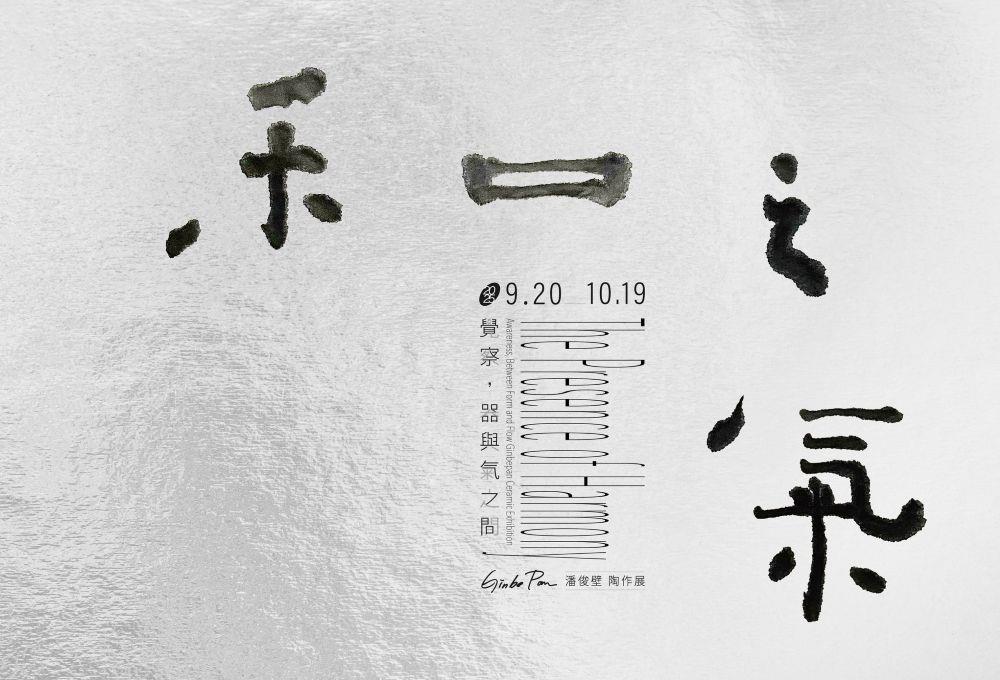 和之氣
2025 9.20 10.19
The Presence of Harmony
Awareness, Between Form and Flow Ginbepan Ceramic Exhibition
覺察，器與氣之間
Ginbe Pan 潘俊壁 陶作展